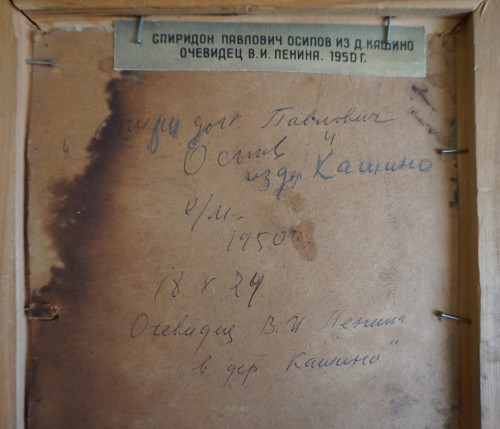 СПИРИДОН ПАВЛОВИЧ ОСИПОВ ИЗ Д. КАШИНО
ОЧЕВИДЕЦ В.И. ЛЕНИНА. 1950 Г.
Спиридон Павлович
Осипов
из дер Кашино
к/м
1950г
18 x 24
Очевидец В.И Ленина
в дер. Кашино"